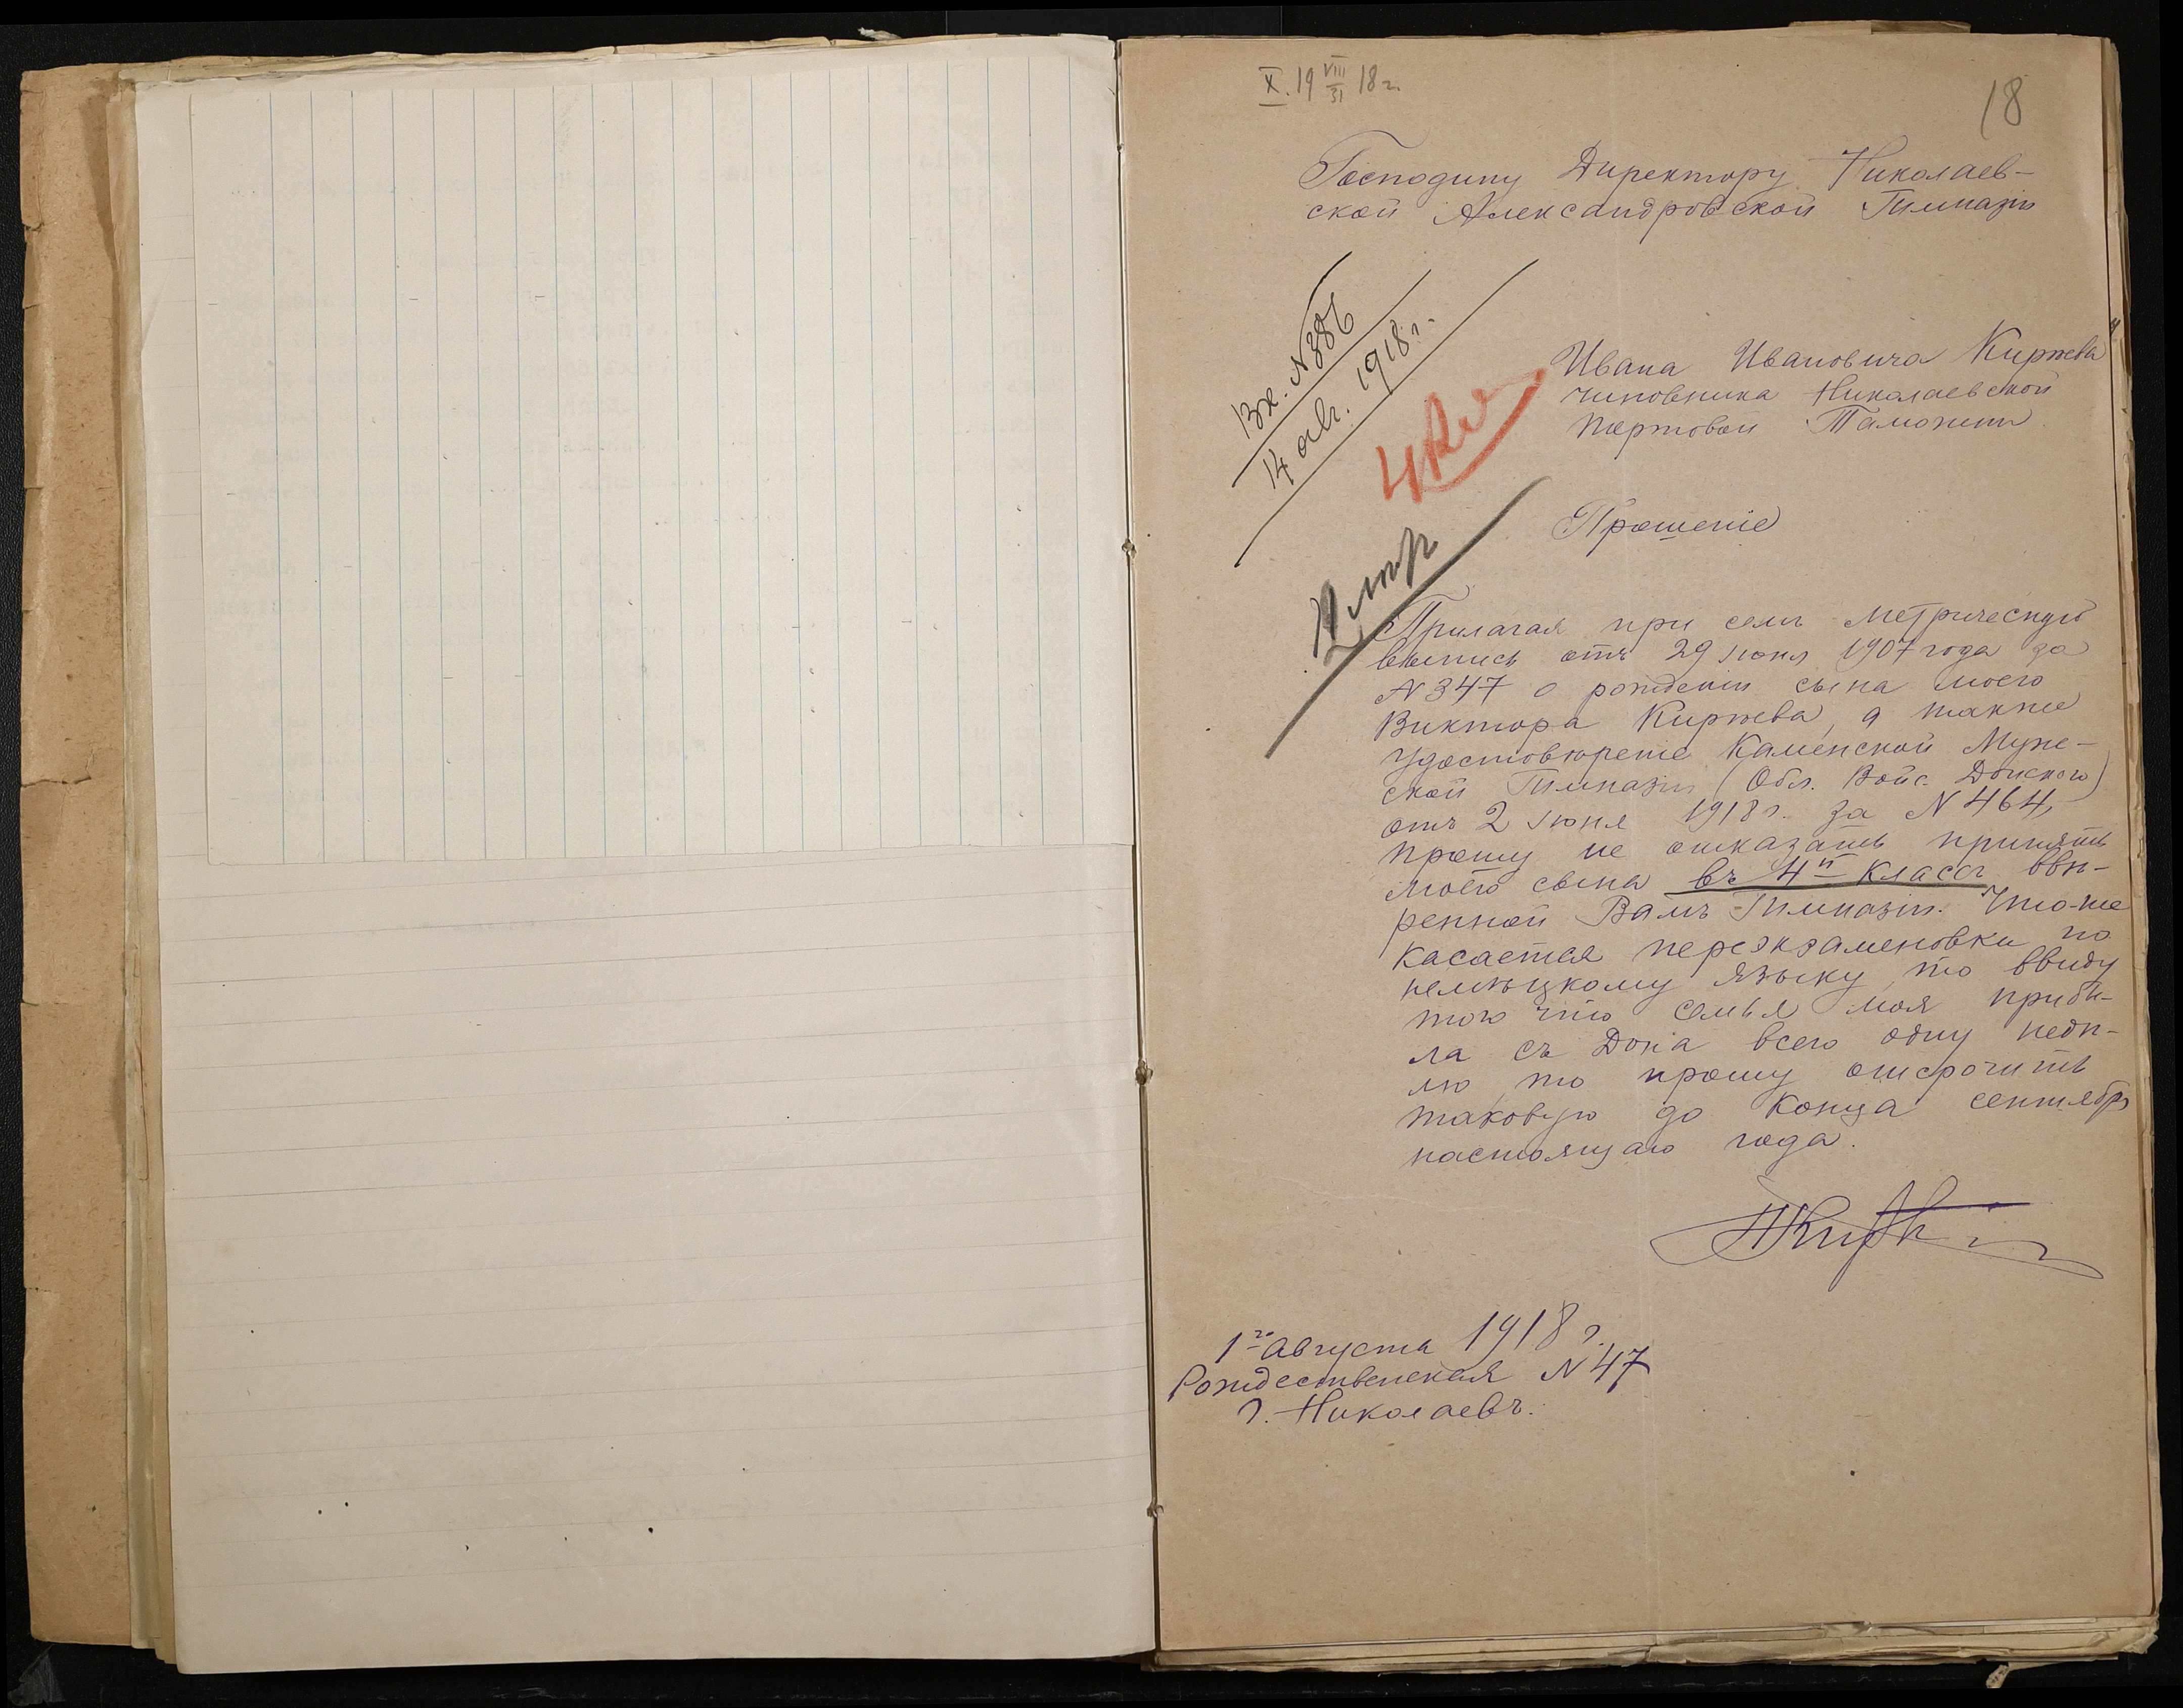 X. 19 VIII/31 18 г.
18
Господину Директору Николаев-
ской Александровской Гимназiи
Вх. N 386
14 авг. 1918 г.
Ивана Ивановича Киржева
чиновника Николаевской
Портовой Таможни
4 кл
Прошенiе
Прилагая при семъ метрическую
выпись отъ 29 Iюня 1907 года за
N 347 о рожденiи сына моего
Виктора Киржева, а также
удостовѣренiе Каменской Муж-
ской Гимназiи (Обл. Войс. Донского)
отъ 2 Iюня 1918 г. за N 464,
прошу не отказать принять
моего сына въ 4й классъ ввѣ-
ренной Вамъ Гимназiи. Что-же
касается переэкзаменовки по
немѣцкому языку, то ввиду
того что семья моя прибы-
ла съ Дона всего одну недѣ-
лю то прошу отсрочить
таковую до конца сентября
настоящаго года.
1го августа 1918 г.
Рождественская N 47
г. Николаевъ.